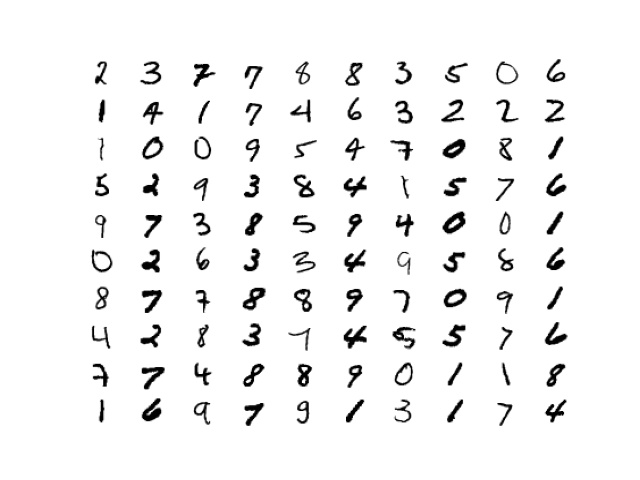 2 3 7 7 8 8 3 5 0 6
1 4 1 7 4 6 3 2 2 2
1 0 0 9 5 4 7 0 8 1
5 2 9 3 8 4 1 5 7 6
9 7 3 8 5 9 4 0 0 1
0 2 6 3 3 4 9 5 8 6
8 7 7 8 8 9 7 0 9 1
4 2 8 3 7 4 5 5 7 6
7 7 4 8 8 9 0 1 1 8
1 6 9 7 9 1 3 1 7 4